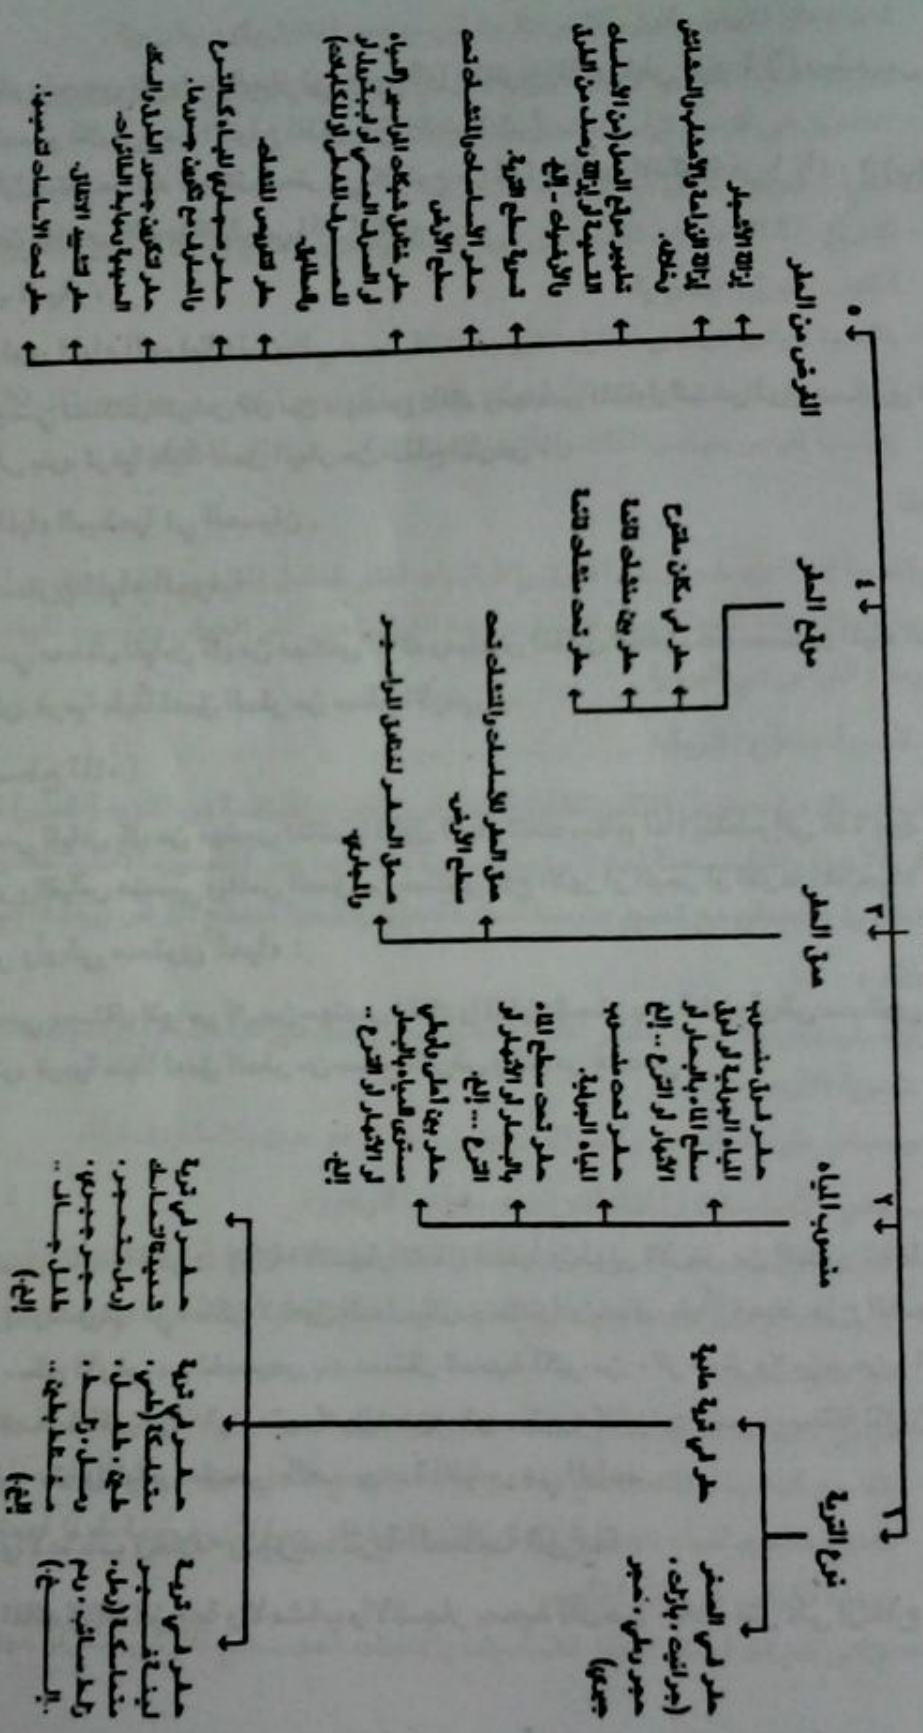 ١
نوع التربة
حفر في الصخر
(جرانيت ، بازلت ،
حجر رملي ، حجر
جيري)
حفر في تربة عادية
حفر في تربة
لينة غير
متماسكة (رمل،
زلط سائب ، ردم
حفر في تربة
متماسكة (طمي ،
طين ، طفل ،
رمل ، زلط ،
مختلط بطين ..
إلخ)
حفر في تربة
شديدة التماسك
(رمل متحجر ،
حجر جيري ،
طفل جاف ..
إلخ)
٢
منسوب المياه
حفر فوق منسوب
المياه الجوفية أو فوق
سطح الماء بالبحار أو
الأنهار أو الترع .. إلخ
حفر تحت منسوب
المياه الجوفية.
حفر تحت سطح الماء
بالبحار أو الأنهار أو
الترع ... إلخ
حفر بين أعلى وأوطى
مستوى المياه بالبحار
أو الأنهار أو الترع ..
إلخ.
٣
عمق الحفر
عمق الحفر للأساسات والمنشآت تحت
سطح الأرض.
عمق الحفر لخنادق المواسير
والمجاري.
٤
موقع الحفر
حفر في مكان مفتوح
حفر بين منشآت قائمة
حفر تحت منشآت قائمة
٥
الغرض من الحفر
إزالة الأشجار
إزالة الزراعة والأعشاب والحشائش
وخلافه.
تطهير موقع العمل (من الأساسات
القديمة أو إزالة رصف من الطرق
والأرضيات - إلخ
تسوية سطح التربة.
حفر الأساسات والمنشآت تحت
سطح الأرض
حفر خنادق شبكات المواسير (المياه
أو الصرف الصحي أو البترول أو
للصرف المغطى أو للكابلات)
والمطابق.
حفر لتفريغ المنشآت
حفر مجاري المياه كالترع
والمصارف مع تكوين جسورها.
حفر لتكوين جسور الطرق والسكك
الحديدية ومهابط الطائرات.
حفر لتشييد الأنفاق.
حفر تحت الأساسات لتدعيمها.